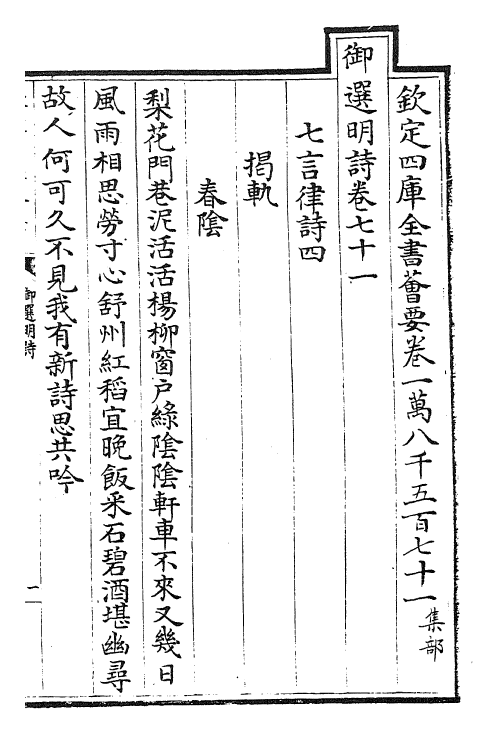 欽定四庫全書薈要卷一萬八千五百七十一集部
御選明詩卷七十一
七言律詩四
揭軌
春陰
梨花門巷泥活活楊柳窗戸綠陰陰軒車不來又幾日
風雨相思勞寸心舒州紅稻宜晚飯采石碧酒堪幽尋
故人何可久不見我有新詩思共吟
御選明詩
一